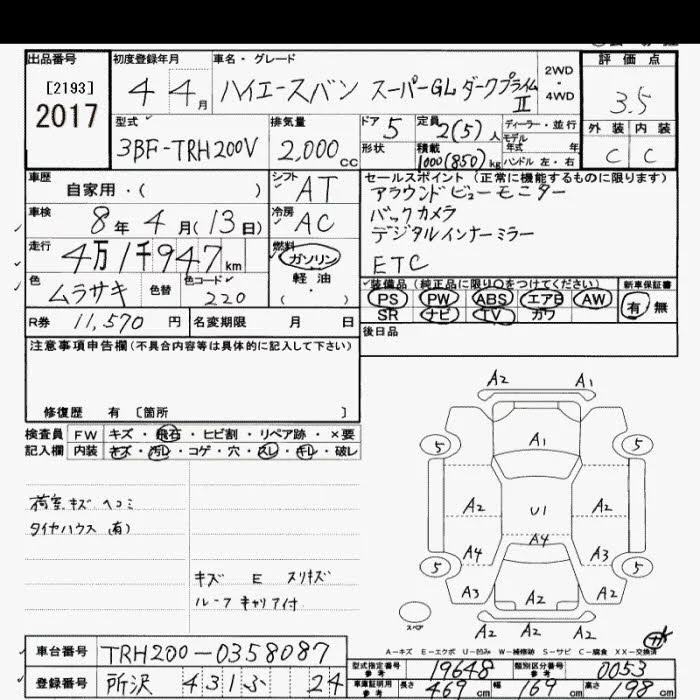 出品番号 初度登録年月 車名・グレード 評価点
[2193] 4 4月 ハイエースバン スーパーGL ダークプライムII 2WD・4WD 3.5
2017
型式 排気量 ドア 定員 ディーラー・並行 外装 内装
3BF-TRH200V 2,000cc 5 2(5)人 モデル年式 年 C C
形状 積載 1000(850)kg ハンドル 左・右
車歴 自家用・( ) シフト AT セールスポイント (正常に機能するものに限ります)
アラウンドビューモニター
車検 8年4月(13日) 冷房 AC バックカメラ
デジタルインナーミラー
走行 4万1千947km 燃料 ガソリン ETC
軽油
( ・ )
色 ムラサキ 色替 色コード 220 装備品 (純正品に限り○をつけてください) 新車保証書
PS PW ABS エアB AW 有 無
SR ナビ TV カワ
R券 11,570円 名変期限 月 日 後日品
注意事項申告欄(不具合内容等は具体的に記入して下さい)
修復歴 有 [箇所 ]
検査員 FW キズ・飛石・ヒビ割・リペア跡・×要
記入欄 内装 キズ・汚レ・コゲ・穴・スレ・キレ・破レ
荷室キズ ヘコミ
タイヤハウス(有)
キズ E スリキズ
ルーフキャリア付
A2 A1
5 A1 5
A2 U1 A2
A4 A4 A3
5 5
A3 A2 A2
A2 A2 A2
スペア
A-キズ E-エクボ U-凹み W-補修跡 S-サビ C-腐食 XX-交換済
車台番号 TRH200-0358087
型式指定番号 参考 19648 類別区分番号 参考 0053
登録番号 所沢 431ふ 24 車庫証明用 参考 長さ 469cm 幅 169cm 高さ 198cm